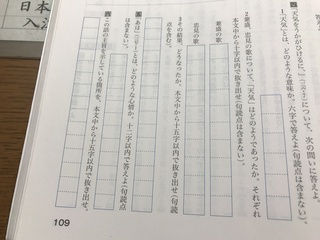 三「天気をうかがひけるに、」(三〇・7)について、次の問いに答えよ。
1「天気」とは、どのような意味か。六字で答えよ(句読点は含まない)。
2 兼盛、忠見の歌について、「天気」はどのようであったか。それぞれ
本文中から十字以内で抜き出せ(句読点は含まない)。
兼盛の歌
忠見の歌
3 その結果、どうなったか。本文中から十五字以内で抜き出せ(句読
点を含む)。
は含まない)。
この話の主題を示している箇所を、本文中から十五字以内で抜き出せ。
109
日本